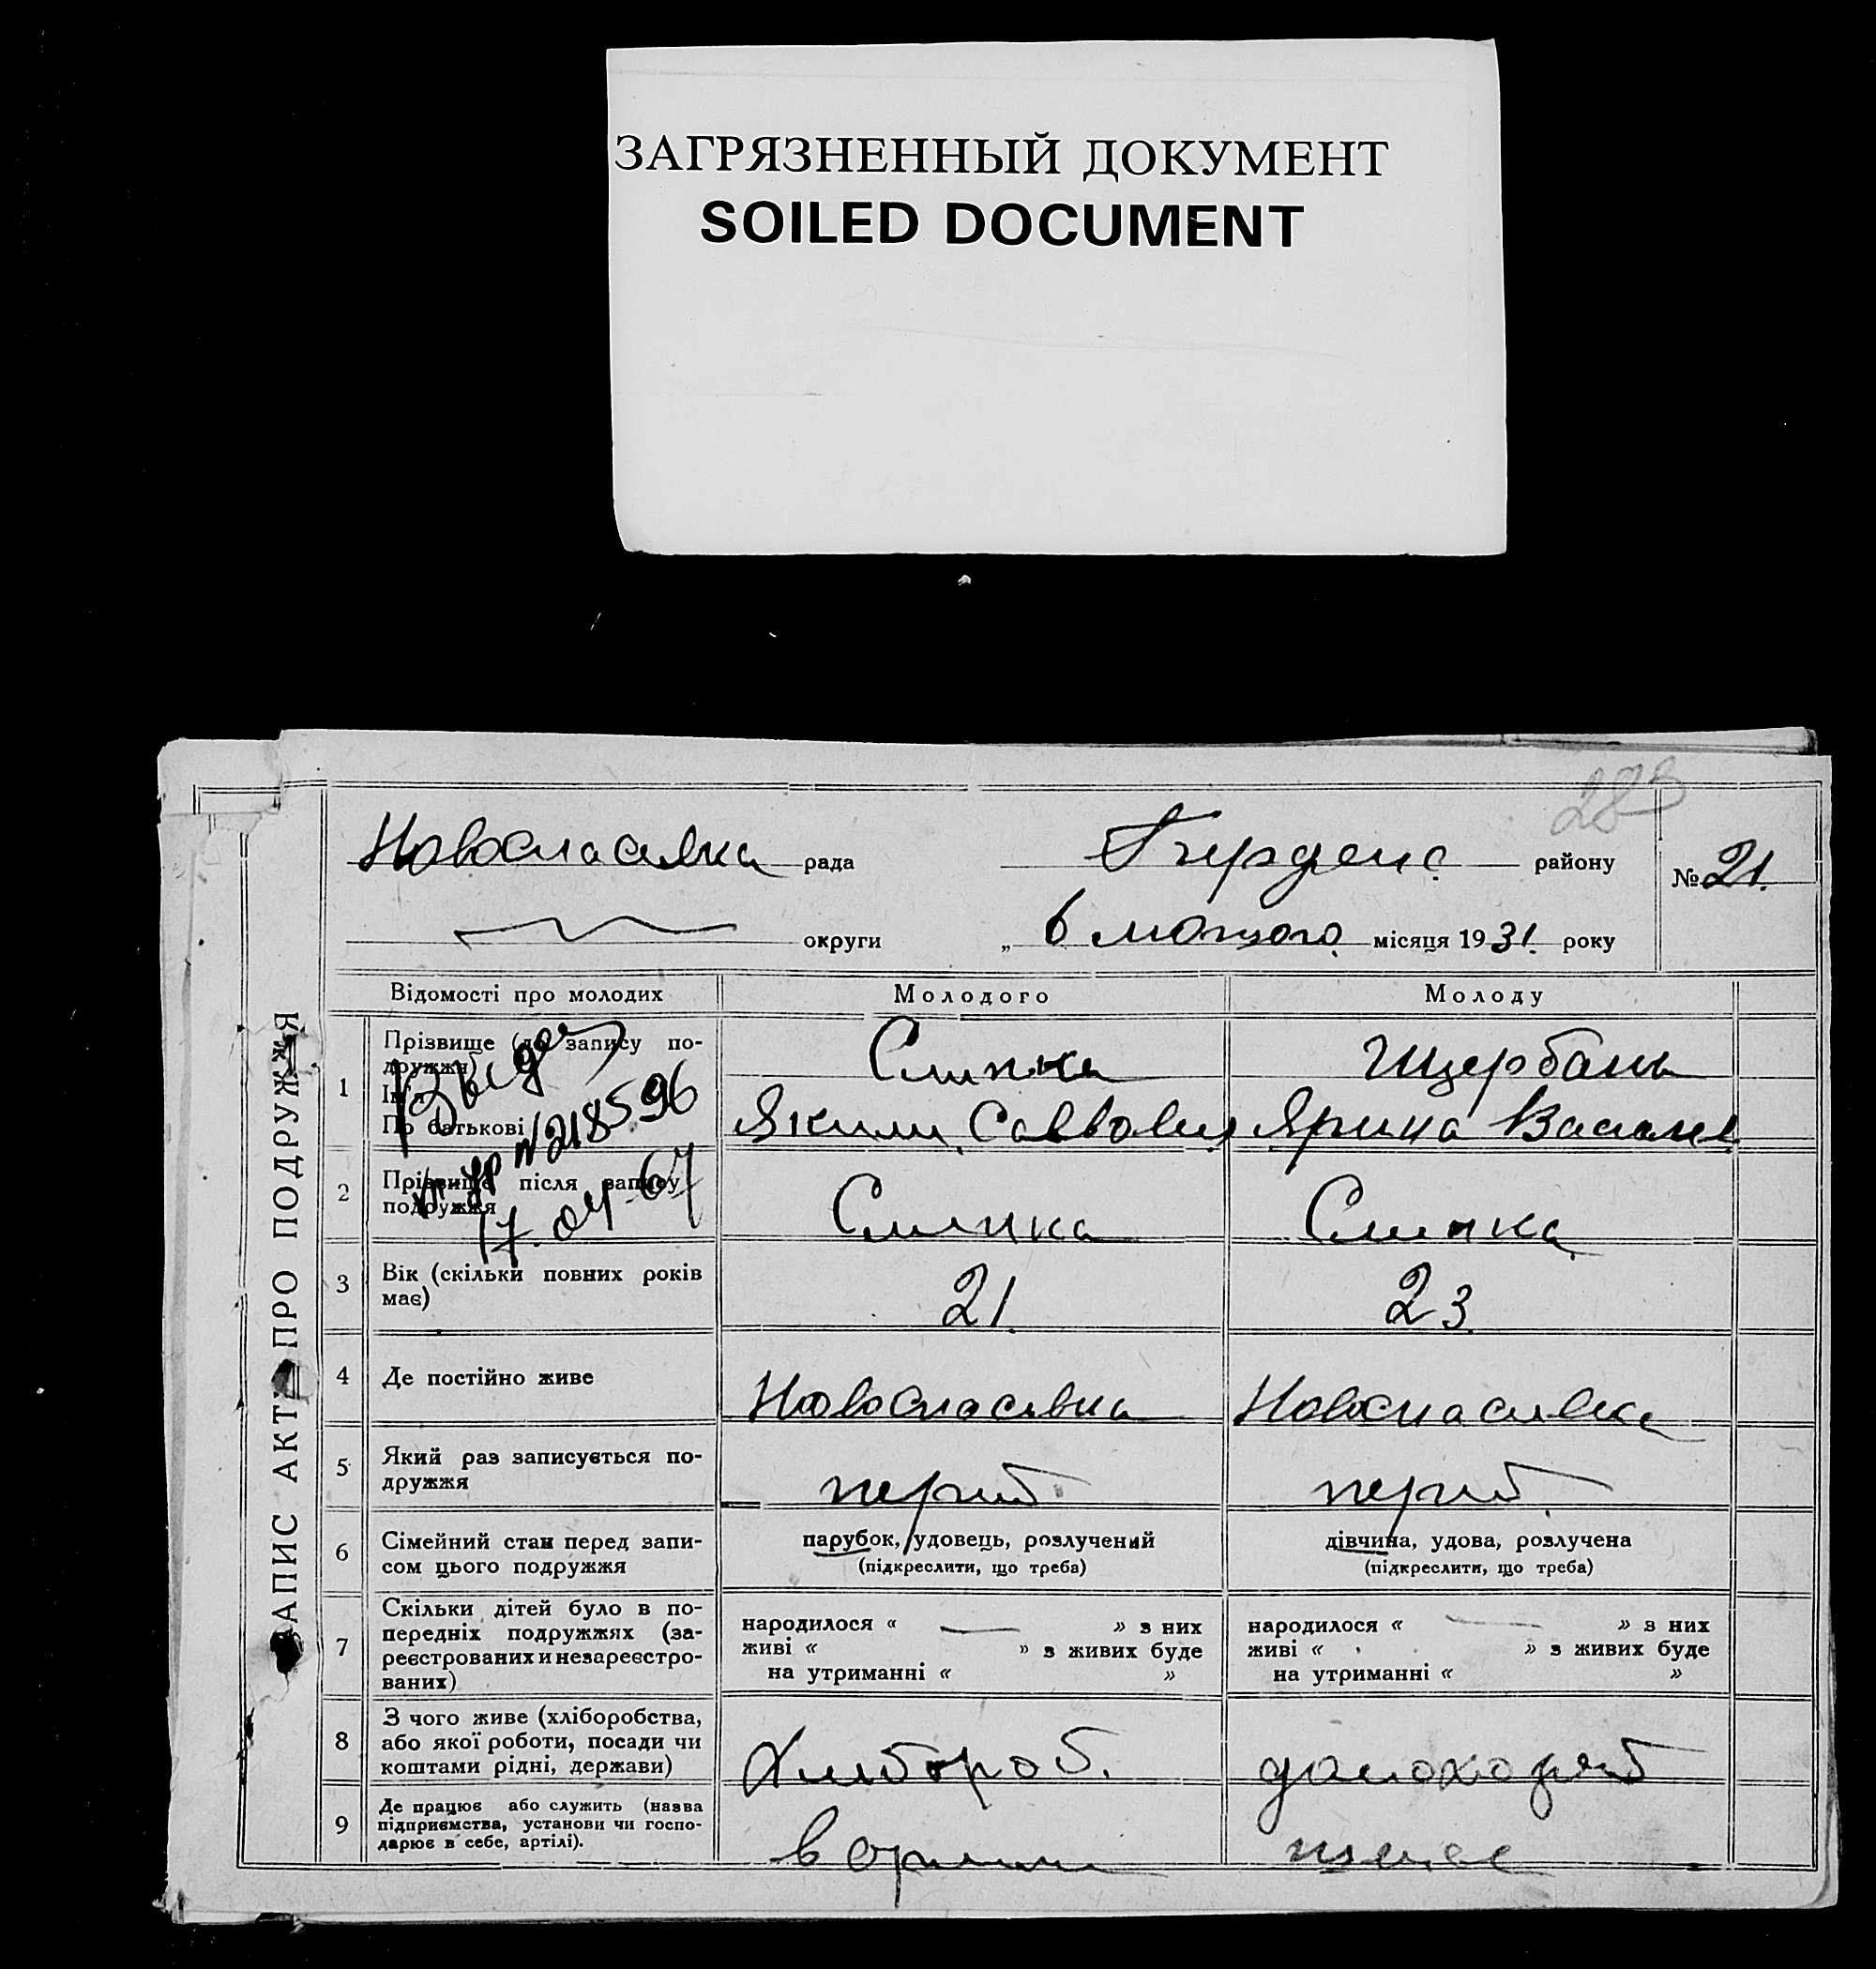 ЗАГРЯЗНЕННЫЙ ДОКУМЕНТ
SOILED DOCUMENT
283
Новоспасивка рада Бердянс. району № 21.
округи „ 6 лютого місяця 1931. року
ЗАПИС АКТУ ПРО ПОДРУЖЖЯ
Відомості про молодих Молодого Молоду
1 Прізвище (до запису подружжя) Слипка Щербань
Ім'я
По батькові Яким Саввович Ярина Василів
2 Прізвище після запису подружжя Слипка Слипка
№218596
17.04-67
3 Вік (скільки повних років
має) 21. 23.
4 Де постійно живе Новоспасивка Новоспасивка
5 Який раз записується по-
дружжя перший перший
6 Сімейний стан перед запи- парубок, удовець, розлучений дівчина, удова, розлучена
сом цього подружжя (підкреслити, що треба) (підкреслити, що треба)
7 Скільки дітей було в по-
передніх подружжях (за- народилося « » з них народилося « » з них
реєстрованих и незареєстро- живі « » з живих буде живі « » з живих буде
ваних) на утриманні « » на утриманні « »
8 З чого живе (хліборобства,
або якої роботи, посади чи
коштами рідні, держави) Хлибороб.
9 Де працює або служить (назва
підприємства, установи чи госпо-
дарює в себе, артілі). в